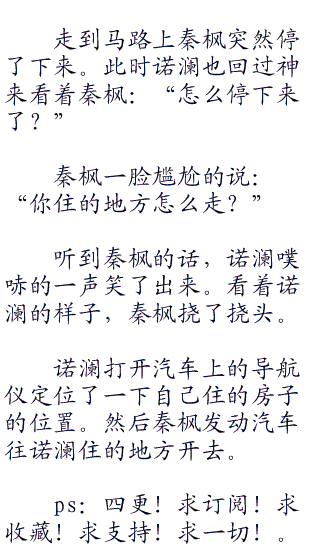 走到马路上秦枫突然停
了下来。此时诺澜也回过神
来看着秦枫：“怎么停下来
了？”
秦枫一脸尴尬的说：
“你住的地方怎么走？”
听到秦枫的话，诺澜噗
哧的一声笑了出来。看着诺
澜的样子，秦枫挠了挠头。
诺澜打开汽车上的导航
仪定位了一下自己住的房子
的位置。然后秦枫发动汽车
往诺澜住的地方开去。
ps：四更！求订阅！求
收藏！求支持！求一切！。